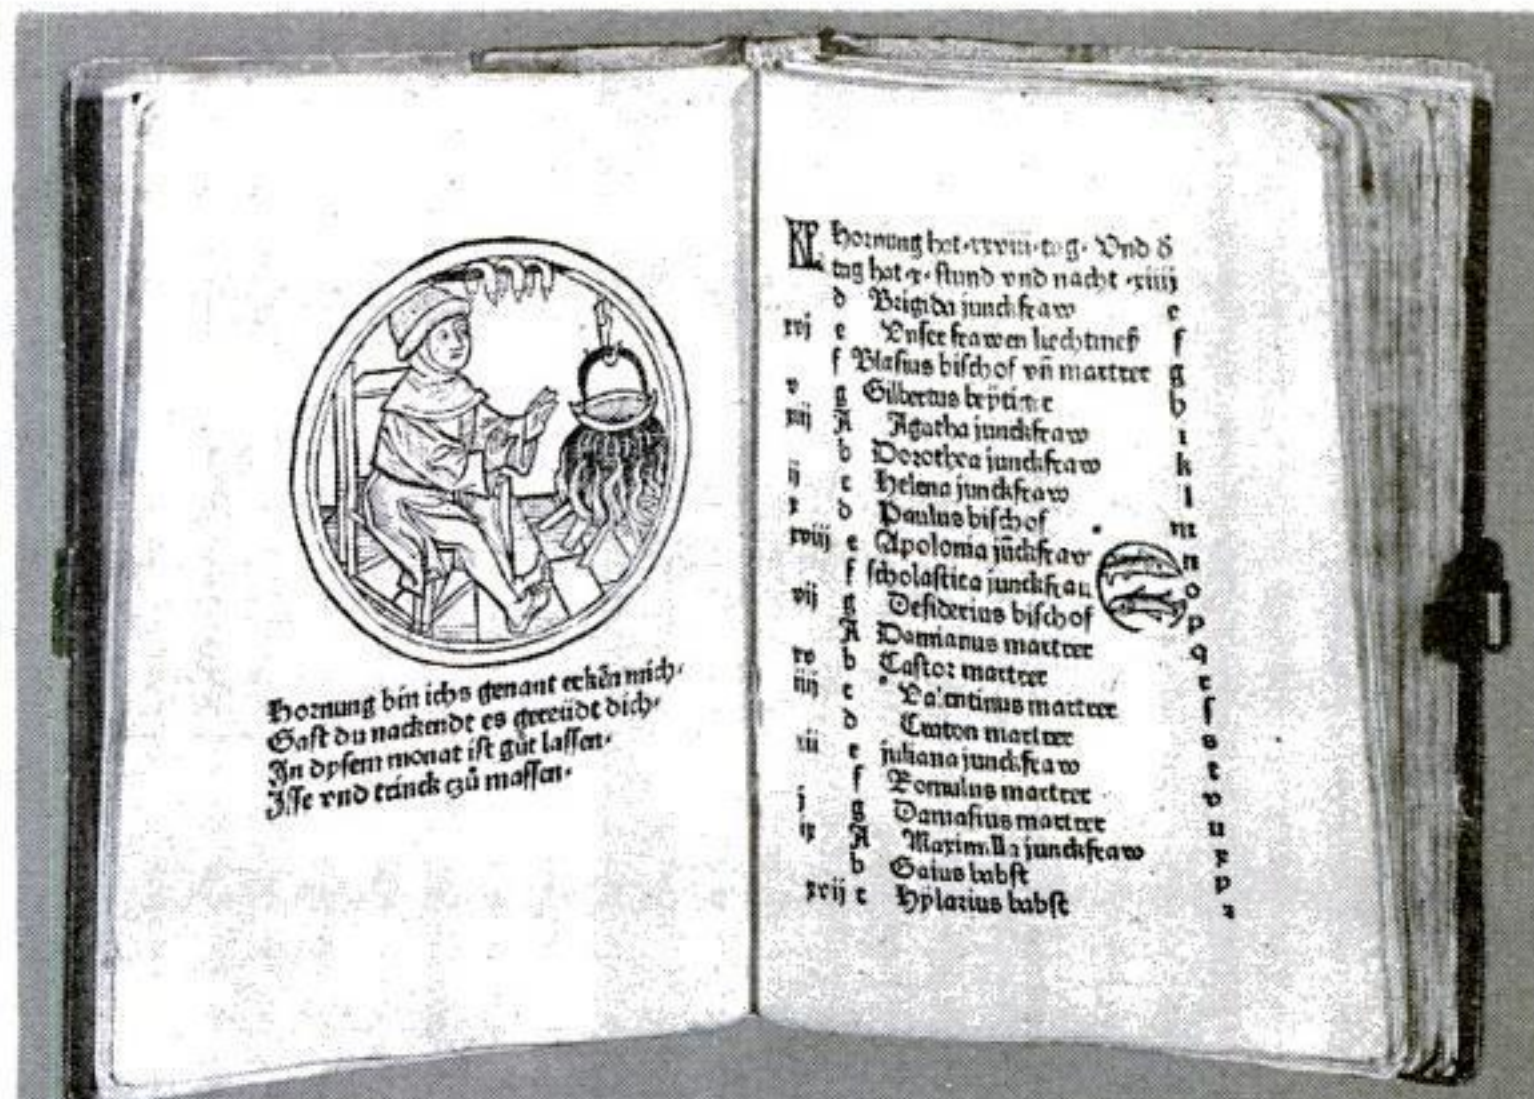 Hornung bin ichs genant erkēn mich·
Gast du nackendt es gereüdt dich·
In dysem monat ist gůt lassen·
Isse vnd trinck czů massen·
KL Hornung hat ·xxviii· tag· Vnd d̄
tag hat ·x· stund vnd nacht ·xiiij
d Brigida junckfraw e
xvj e Vnser frawen liechtmeß f
f Blasius bischof vn̄ martrer g
v g Gilbertus h
xiij A Agatha junckfraw i
b Dorothea junckfraw k
ij c Helena junckfraw l
x d Paulus bischof m
xviij e Apolonia jūckfraw n
f scholastica junckfrau o
vij g Desiderius bischof p
A Damianus martrer q
xv b Castor martrer r
iiij c Valentinus martrer ſ
d Craton martrer s
xii e juliana junckfraw t
f Romulus martrer v
j g Damasius martrer u
ix A Maximilla junckfraw x
b Gaius babst y
xvij c Hylarius babst z